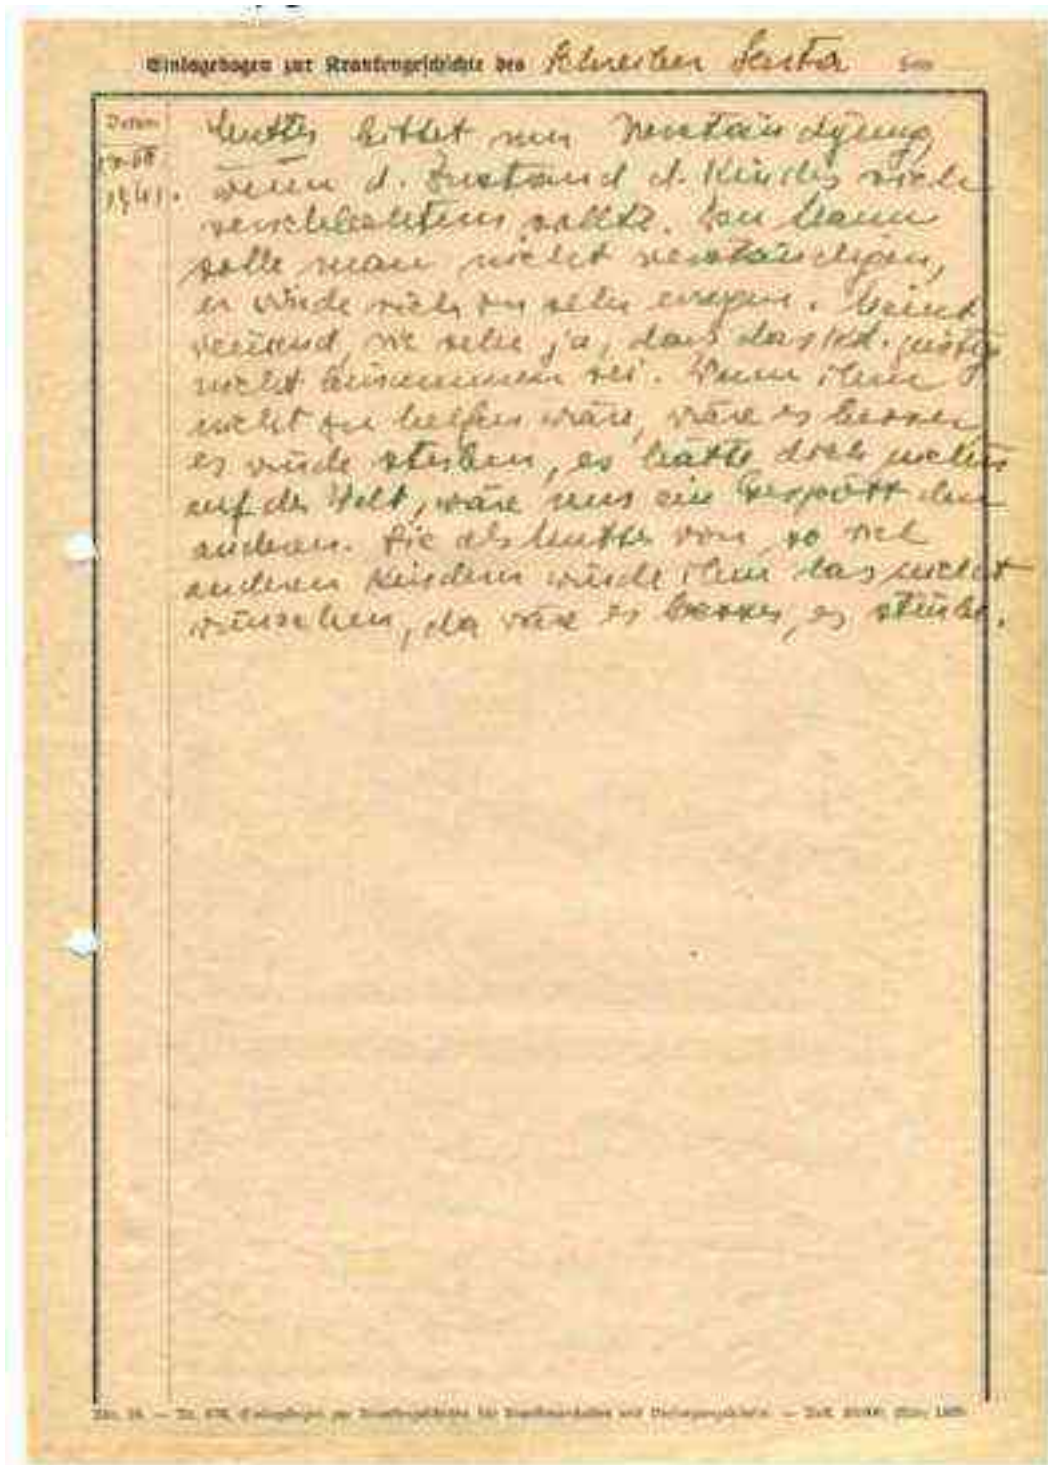 Einlagebogen zur Krankengeschichte des Schreiber Herta Seite
Datum
Mutter bittet um Verständigung,
1941. wenn d. Zustand d. Kindes sich
verschlechtern sollte. Den Mann
solle man nicht verständigen,
er würde sich zu sehr erregen. Meint
weinend, sie sehe ja, dass das Kd. geistig
nicht beisammen sei. Wenn ihm
nicht zu helfen wäre, wäre es besser,
es würde sterben, es hätte doch nichts
auf der Welt, wäre nur ein Gespött der
anderen. Sie als Mutter von so viel
anderen Kindern würde ihm das nicht
wünschen, da wäre es besser, es stürbe.